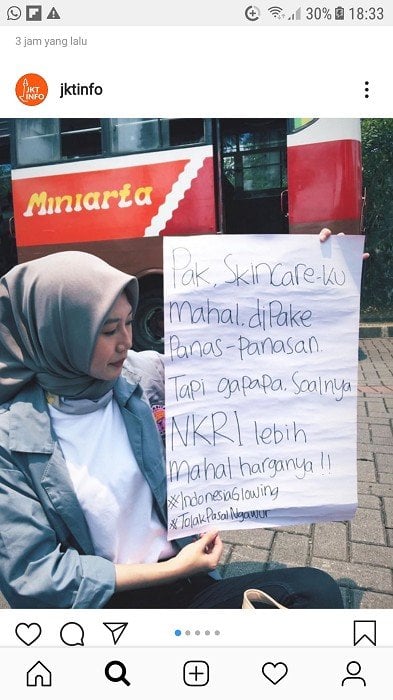 30% 18:33
3 jam yang lalu
JKT
INFO
jktinfo
Miniarta
Pak, Skincare-ku
mahal. diPake
Panas-Panasan.
Tapi gapapa. Soalnya
NKRI lebih
mahal harganya !!
#IndonesiaGlowing
#TolakPasalNgawur